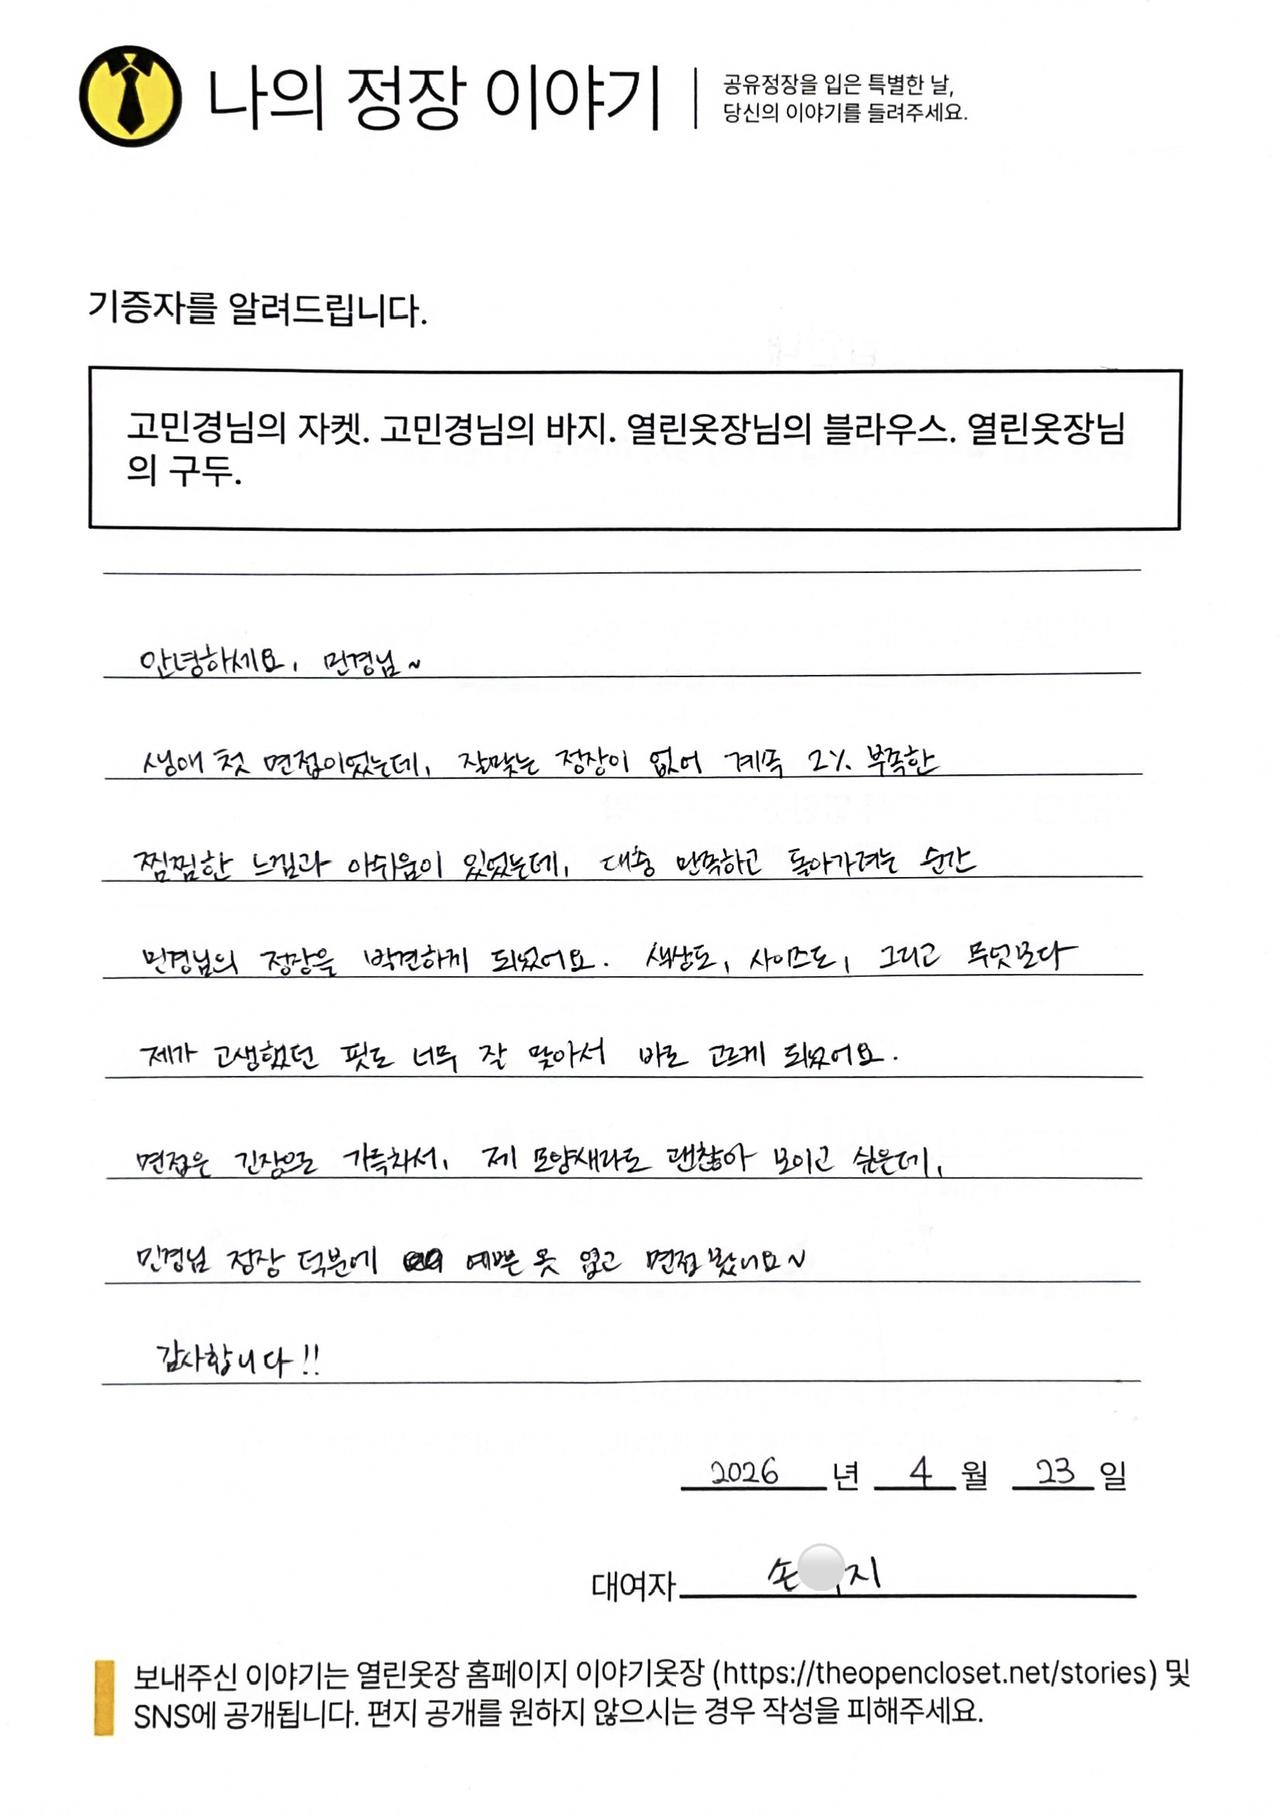 나의 정장 이야기
공유정장을 입은 특별한 날,
당신의 이야기를 들려주세요.
기증자를 알려드립니다.
고민경님의 자켓. 고민경님의 바지. 열린옷장님의 블라우스. 열린옷장님
의 구두.
안녕하세요, 민경님~
생애 첫 면접이었는데, 잘맞는 정장이 없어 계속 2% 부족한
찜찜한 느낌과 아쉬움이 있었는데, 대충 만족하고 돌아가려는 순간
민경님의 정장을 발견하게 되었어요. 색상도, 사이즈도, 그리고 무엇보다
제가 고생했던 핏도 너무 잘 맞아서 바로 고르게 되었어요.
면접은 긴장으로 가득차서, 제 모양새라도 괜찮아 보이고 싶은데,
민경님 정장 덕분에 예쁜 옷 입고 면접 봤네요~
감사합니다!!
2026 년 4 월 23 일
대여자 손 지
보내주신 이야기는 열린옷장 홈페이지 이야기옷장 (https://theopencloset.net/stories) 및
SNS에 공개됩니다. 편지 공개를 원하지 않으시는 경우 작성을 피해주세요.